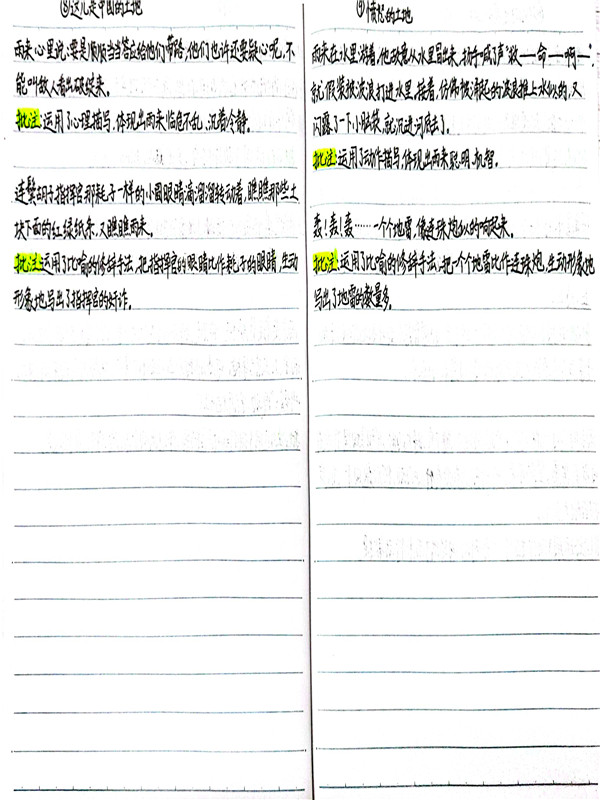 ⑧这儿是中国的土地
雨来心里说:要是顺顺当当答应给他们带路,他们也许还要疑心呢,不
能叫敌人看出破绽来。
批注:运用了心理描写,体现出雨来临危不乱,沉着冷静。
连鬓胡子指挥官那耗子一样的小圆眼睛滴溜溜转动着,瞧瞧那些土
块下面的红绿纸条,又瞧瞧雨来。
批注:运用了比喻的修辞手法,把指挥官的眼睛比作耗子的眼睛,生动
形象地写出了指挥官的奸诈。
⑨愤怒的土地
雨来在水里游着,他故意从水里冒出来,拍手喊了声“救—命—啊—”,
就假装被波浪打进水里。接着,仿佛被涌起的波浪推上水似的,又
闪露了一下小脑袋,就沉进河底去了。
批注:运用了动作描写,体现出雨来聪明、机智。
轰!轰!轰……一个个地雷,像连珠炮似的响起来。
批注:运用了比喻的修辞手法,把一个个地雷比作连珠炮,生动形象地
写出了地雷的数量多。